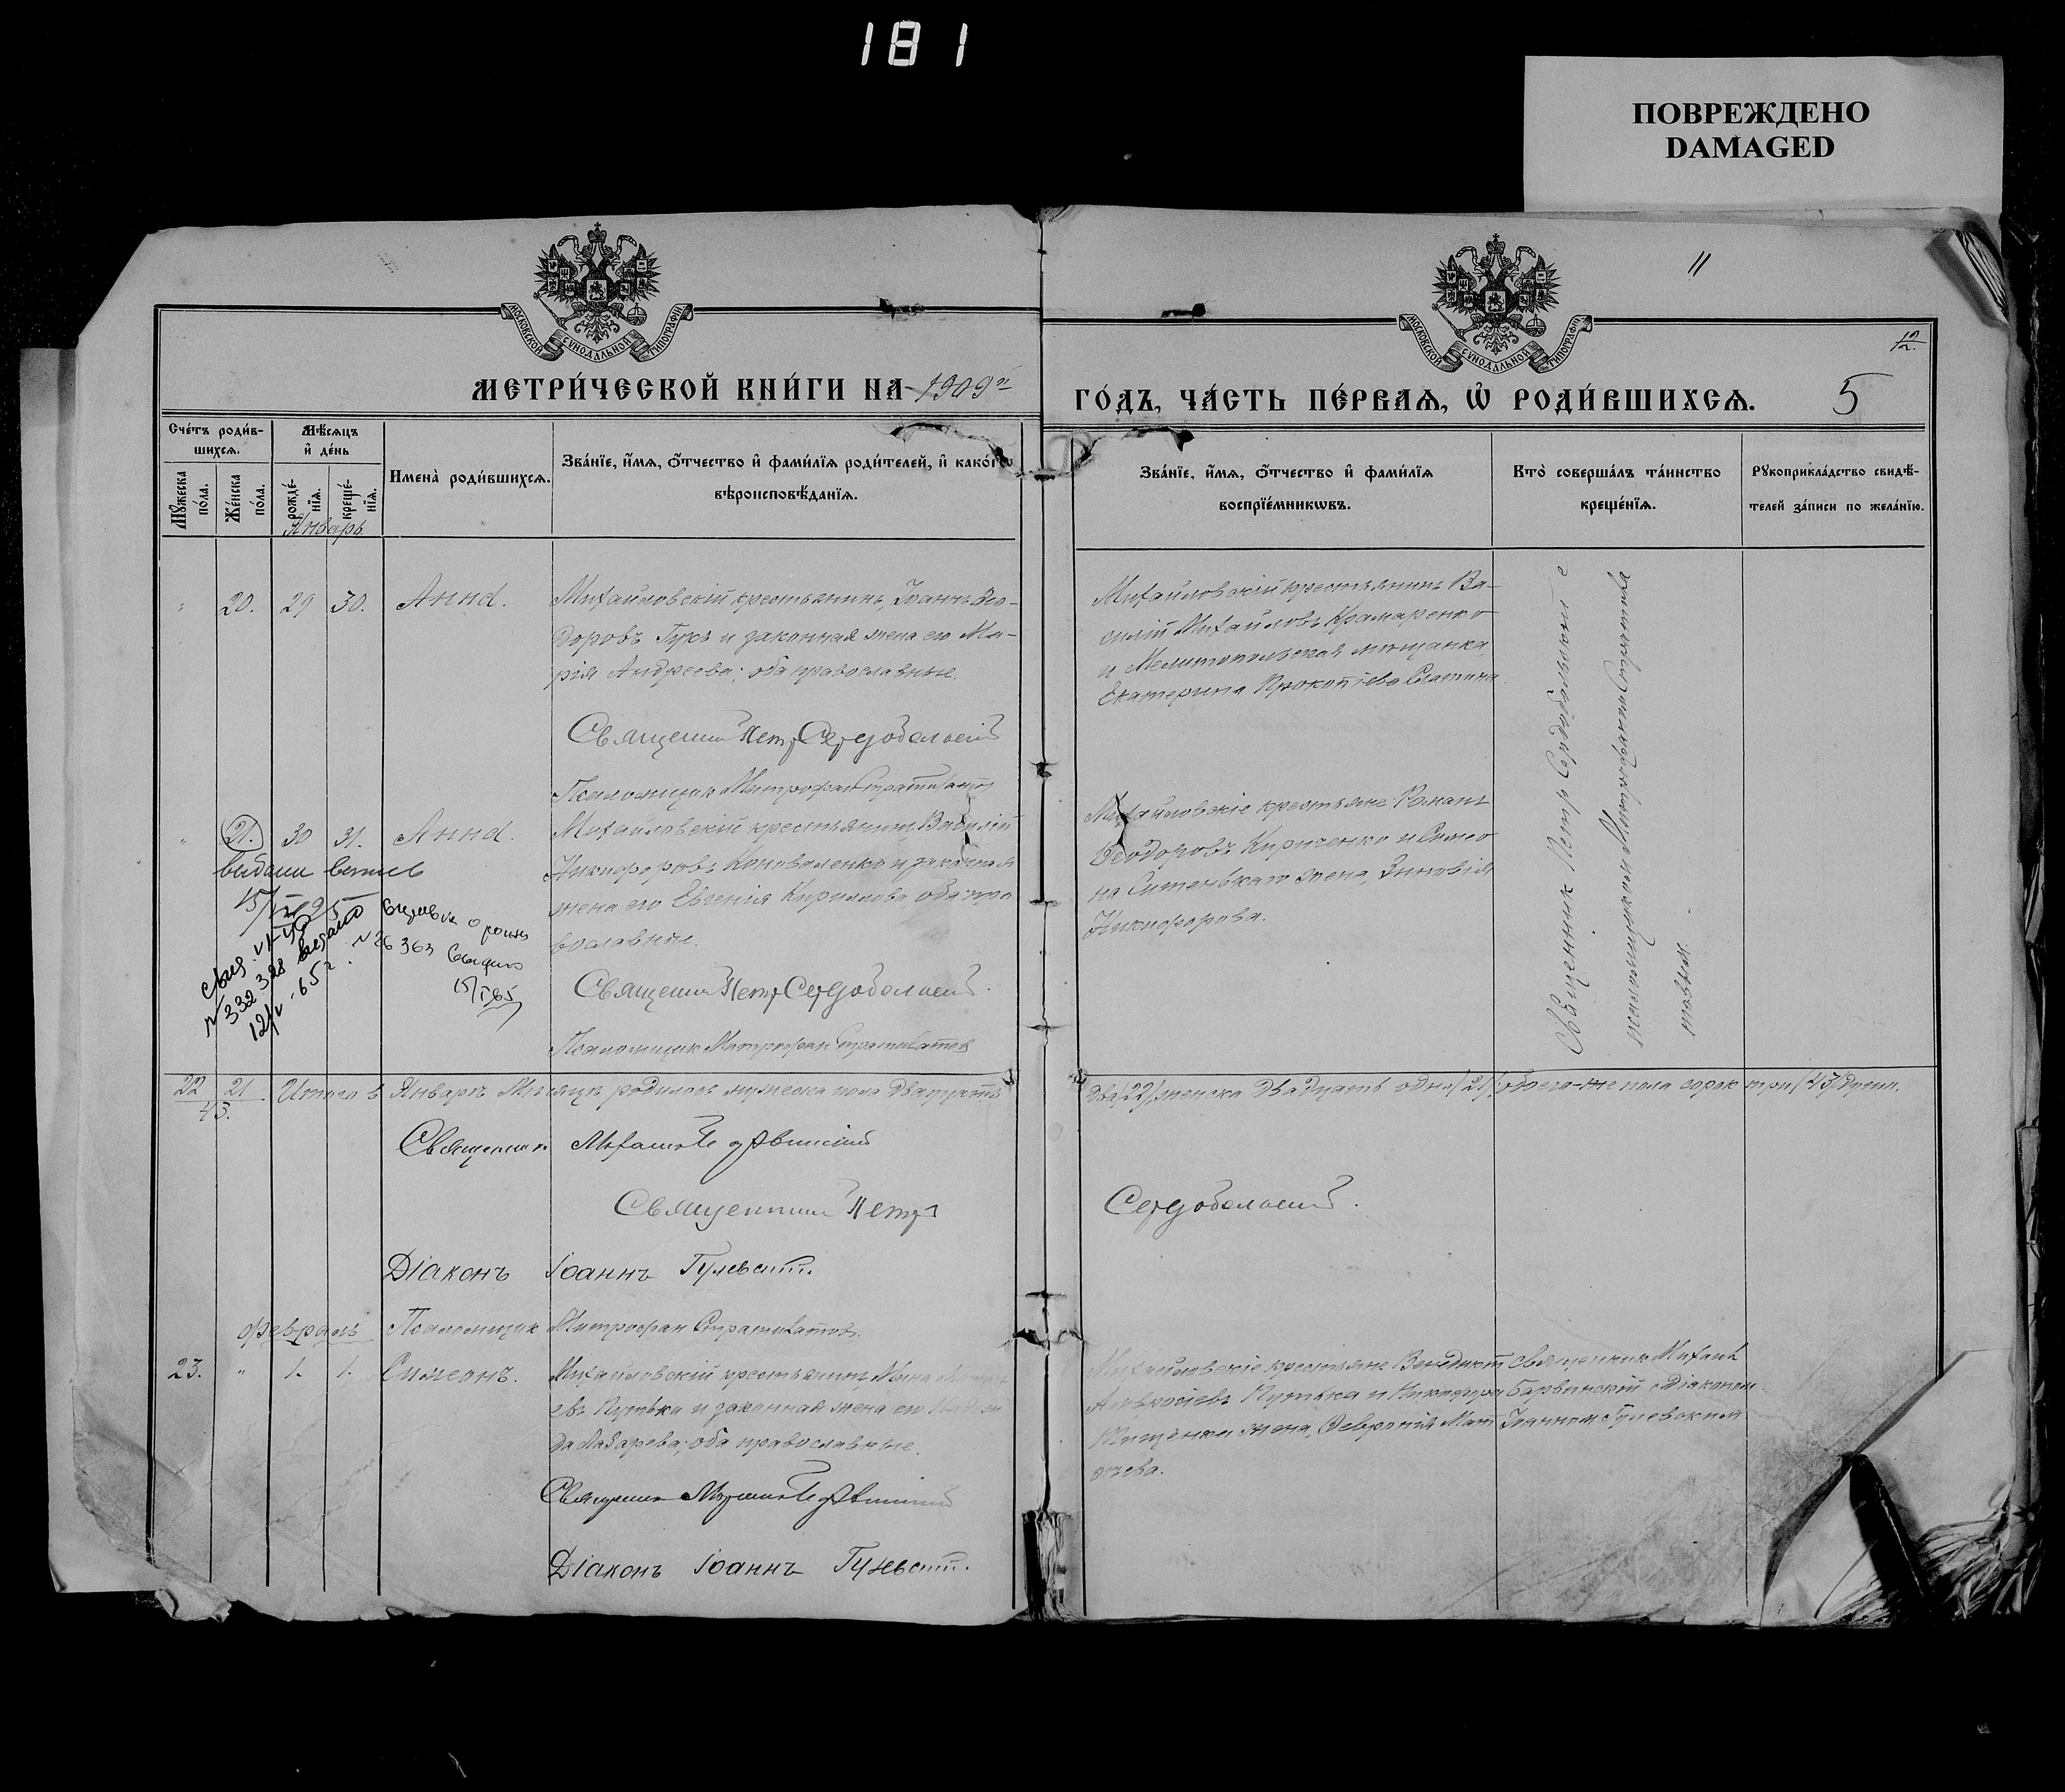 181
ПОВРЕЖДЕНО
DAMAGED
11
12.
МОСКОВСКОЙ СѴНОДАЛЬНОЙ ТИПОГРАФІИ
МОСКОВСКОЙ СѴНОДАЛЬНОЙ ТИПОГРАФІИ
МЕТРИ́ЧЕСКОЙ КНИ́ГИ НА 1909й
ГО́ДЪ, ЧА́СТЬ ПЕ́РВАѦ, Ѽ РОДИ́ВШИХСѦ. 5
Сче́тъ роди́в-
шихсѧ.
Мѣ́сѧцъ
и҆ де́нь
Мꙋ́жеска по́ла.
Же́нска по́ла.
рожде́-нїѧ.
креще́-нїѧ.
Имена̀ роди́вшихсѧ.
Зва́нїе, и҆́мѧ, ѻ҆́тчество и҆ фами́лїѧ роди́телей, и҆ како́гѡ
вѣроисповѣ́данїѧ.
Зва́нїе, и҆́мѧ, ѻ҆́тчество и҆ фами́лїѧ
воспрїе́мникѡвъ.
Кто̀ соверша́лъ та́инство
креще́нїѧ.
Рꙋкоприкла́дство свидѣ́-
телей за́писи по жела́нїю.
Январь.
" 20. 29 30. Анна.
Михайловскій крестьянинъ, Іоаннъ Ѳео-
доровъ Гукъ и законная жена его Ма-
рія Андреева; оба православные.
Священникъ Петръ Сердобольскій
Псаломщикъ Митрофанъ Стратилатовъ
Михайловскій крестьянинъ Ва-
силій Михайловъ Крамаренко
и Мелитопольская мѣщанка,
Екатерина Прокопіева
Священникъ Петръ Сердобольскій с
псаломщикомъ Митрофаномъ Стратила
товымъ.
" 21. 30 31. Анна.
Михайловскій крестьянинъ Василій
Никифоровъ Коноваленко и законная
жена его Евгенія Кириллова оба пра
вославные.
Священникъ Петръ Сердобольскій.
Псаломщикъ Митрофанъ Стратилатовъ
Михайловскіе крестьяне Романъ
Ѳеодоровъ Кириченко и Симео
на жена, Зиновія
Никифорова.
видани
N 332 328 видано
12/V-65 г.
N 26363
22 21. Итого въ Январѣ Мѣсяцѣ родилось мужеска пола двадцать два /22/, женска двадцать одна /21/, обоего-же пола сорок три /43/ души.
43.
Священникъ Михаилъ Барвинскій
Священникъ Петръ Сердобольскій.
Діаконъ Іоаннъ Гулевскій.
Псаломщикъ Митрофанъ Стратилатовъ.
Февраль
23. " 1. 1. Симеонъ.
Михайловскій крестьянинъ, Мина
евъ Путька и законная жена его
да Лазарева; оба православные.
Священникъ Михаилъ Барвинскій
Діаконъ Іоаннъ Гулевскій.
Михайловскіе крестьяне Венедиктъ
Амвросіевъ Путька и Никифора
Тищенка жена, Ѳевронія Мат
ѳѣева.
Священникъ Михаилъ
Барвинскій с Діакономъ
Іоанномъ Гулевскимъ